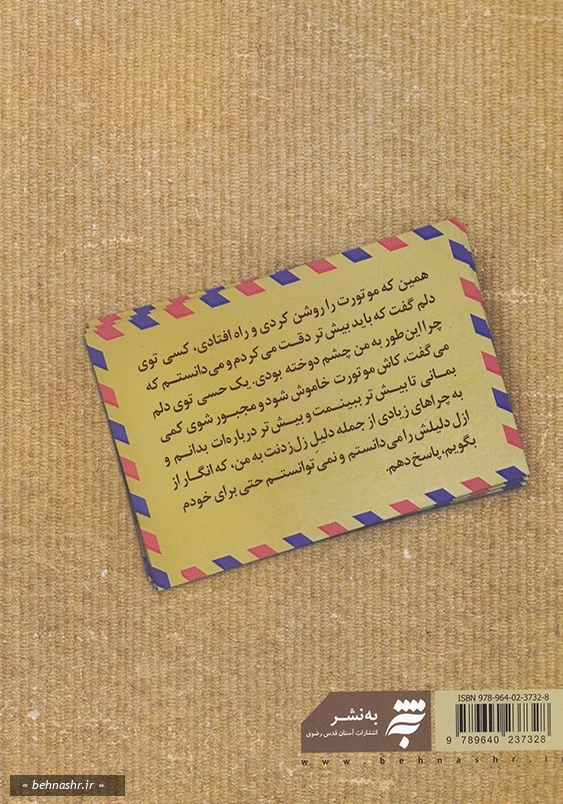 همین که موتورت را روشن کردی و راه افتادی، کسی توی
دلم گفت که باید بیش‌تر دقت می‌کردم و می‌دانستم که
چرا این‌طور به من چشم دوخته بودی. یک حسی توی دلم
می‌گفت، کاش موتورت خاموش شود و مجبور شوی کمی
بمانی تا بیش‌تر ببینمت و بیش‌تر درباره‌ات بدانم و
به چراهای زیادی از جمله دلیلِ زل‌زدنت به من، که انگار از
ازل دلیلش را می‌دانستم و نمی‌توانستم حتی برای خودم
بگویم، پاسخ دهم.
به‌نشر
انتشارات آستان قدس رضوی
ISBN 978-964-02-3732-8
9 789640 237328
www.behnashr.ir
« behnashr.ir »